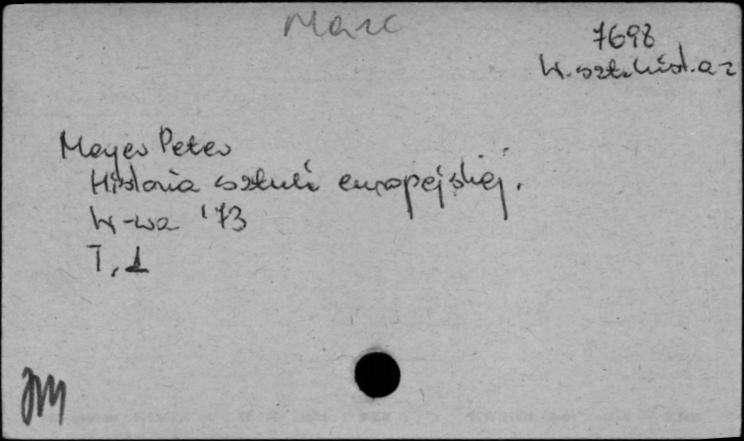 Marc
7698
W. szt. hist. a-z
Meyer Peter
Historia sztuki europejskiej.
W-wa '73
T. 1
JM